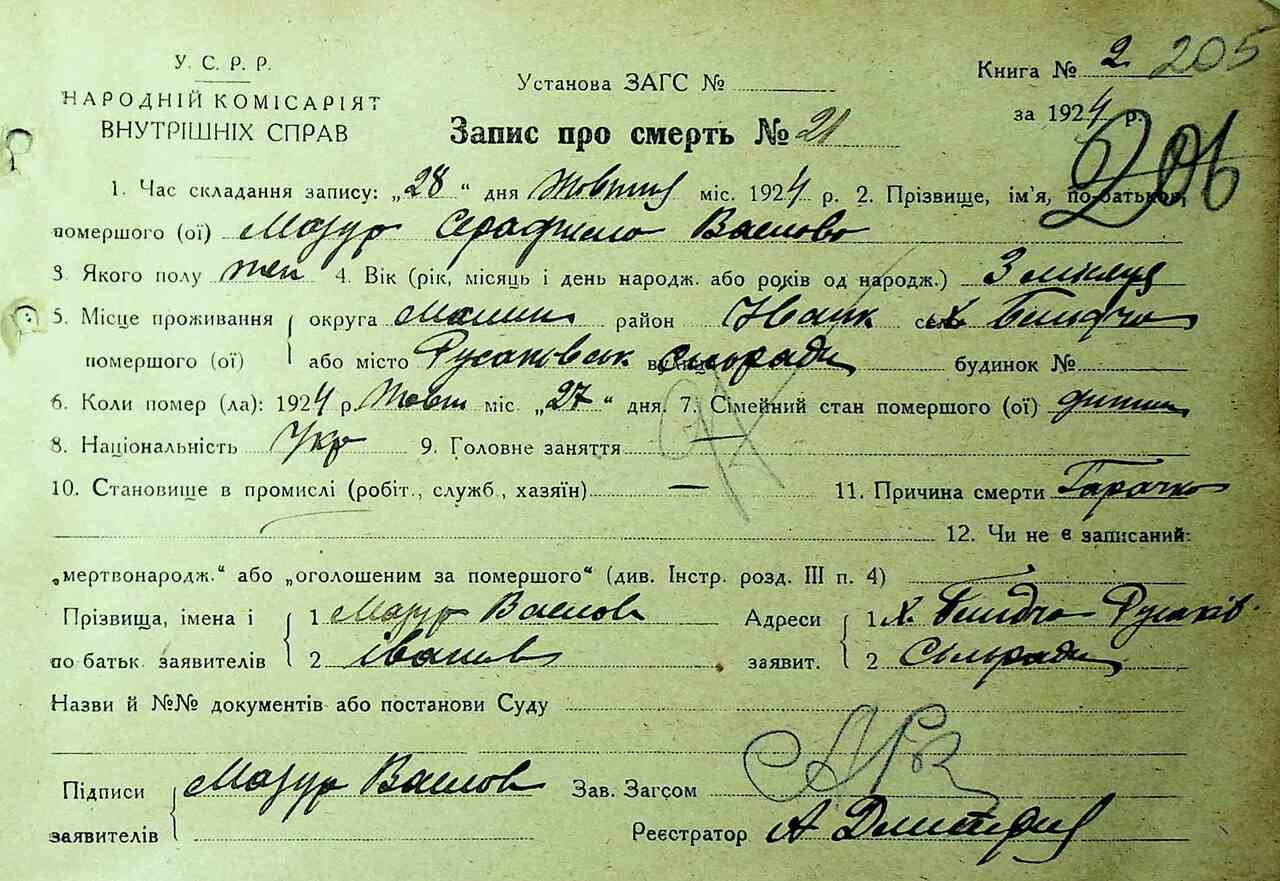 У. С. Р. Р.
НАРОДНІЙ КОМІСАРІЯТ
ВНУТРІШНІХ СПРАВ
Установа ЗАГС №
Книга № 2 205
за 1924 р.
206
Запис про смерть № 21
1. Час складання запису: „28“ дня Жовтня міс. 1924 р. 2. Прізвище, ім'я, по-батькові,
помершого (ої) Мазур Серафима
3. Якого полу жен 4. Вік (рік, місяць і день народж. або років од народж.) 3 місяця
5. Місце проживання округа район
помершого (ої) або місто сільради будинок №
6. Коли помер (ла): 1924 р. Жовт міс „27“ дня. 7. Сімейний стан помершого (ої) дитина
8. Національність Укр 9. Головне заняття —
10. Становище в промислі (робіт., служб., хазяїн) — 11. Причина смерти Гарачка
12. Чи не є записаний:
„мертвонародж.“ або „оголошеним за помершого“ (див. Інстр. розд. III п. 4)
Прізвища, імена і 1 Мазур Адреси 1 х.
по батьк. заявителів 2 заявит. 2 Сільради
Назви й №№ документів або постанови Суду
Підписи Мазур Зав. Загсом
заявителів Реєстратор А